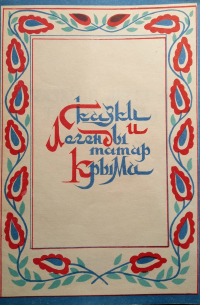 Сказки
и
Легенды
татар
Крыма